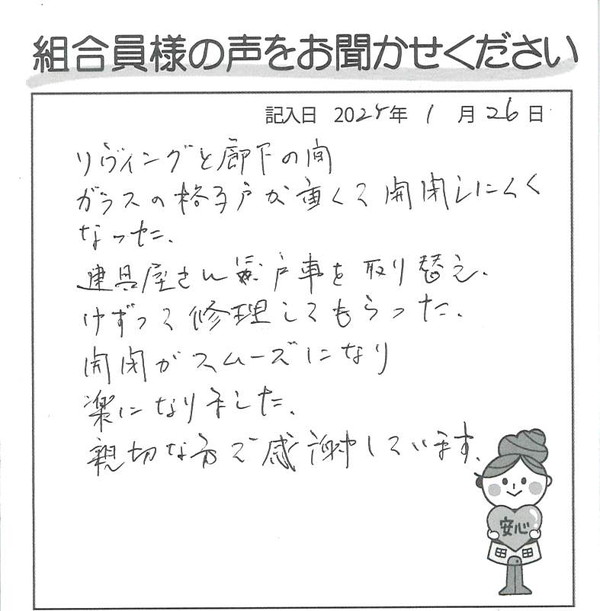 組合員様の声をお聞かせください
記入日 2025年 1月26日
リヴィングと廊下の間
ガラスの格子戸が重くて開閉しにくく
なった。
建具屋さんに 戸車を取り替え、
けずって修理してもらった。
開閉がスムーズになり
楽になりました。
親切な方で感謝しています。
安心